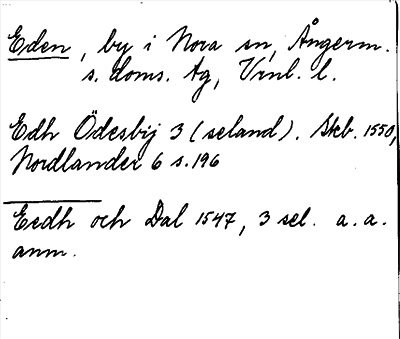 Eden, by i Nora sn, Ångerm.
s. doms. tg, Vrnl. l.
Edh Ödesbij 3 (seland). Skb. 1550,
Nordlander 6 s. 196
Eedh och Dal 1547, 3 sel. a. a.
anm.